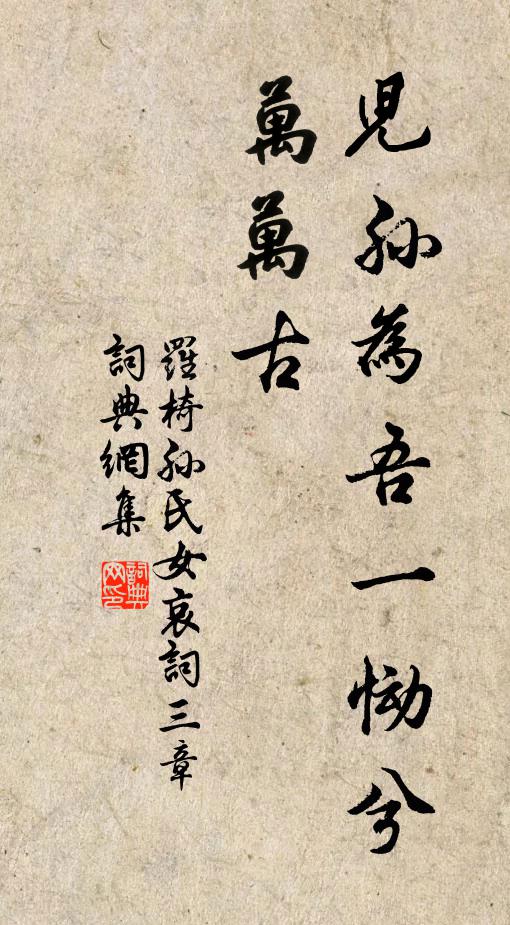 児孫為吾一慟兮
萬萬古
羅椅孫氏女哀詞三章
詞典網集
詞典网印